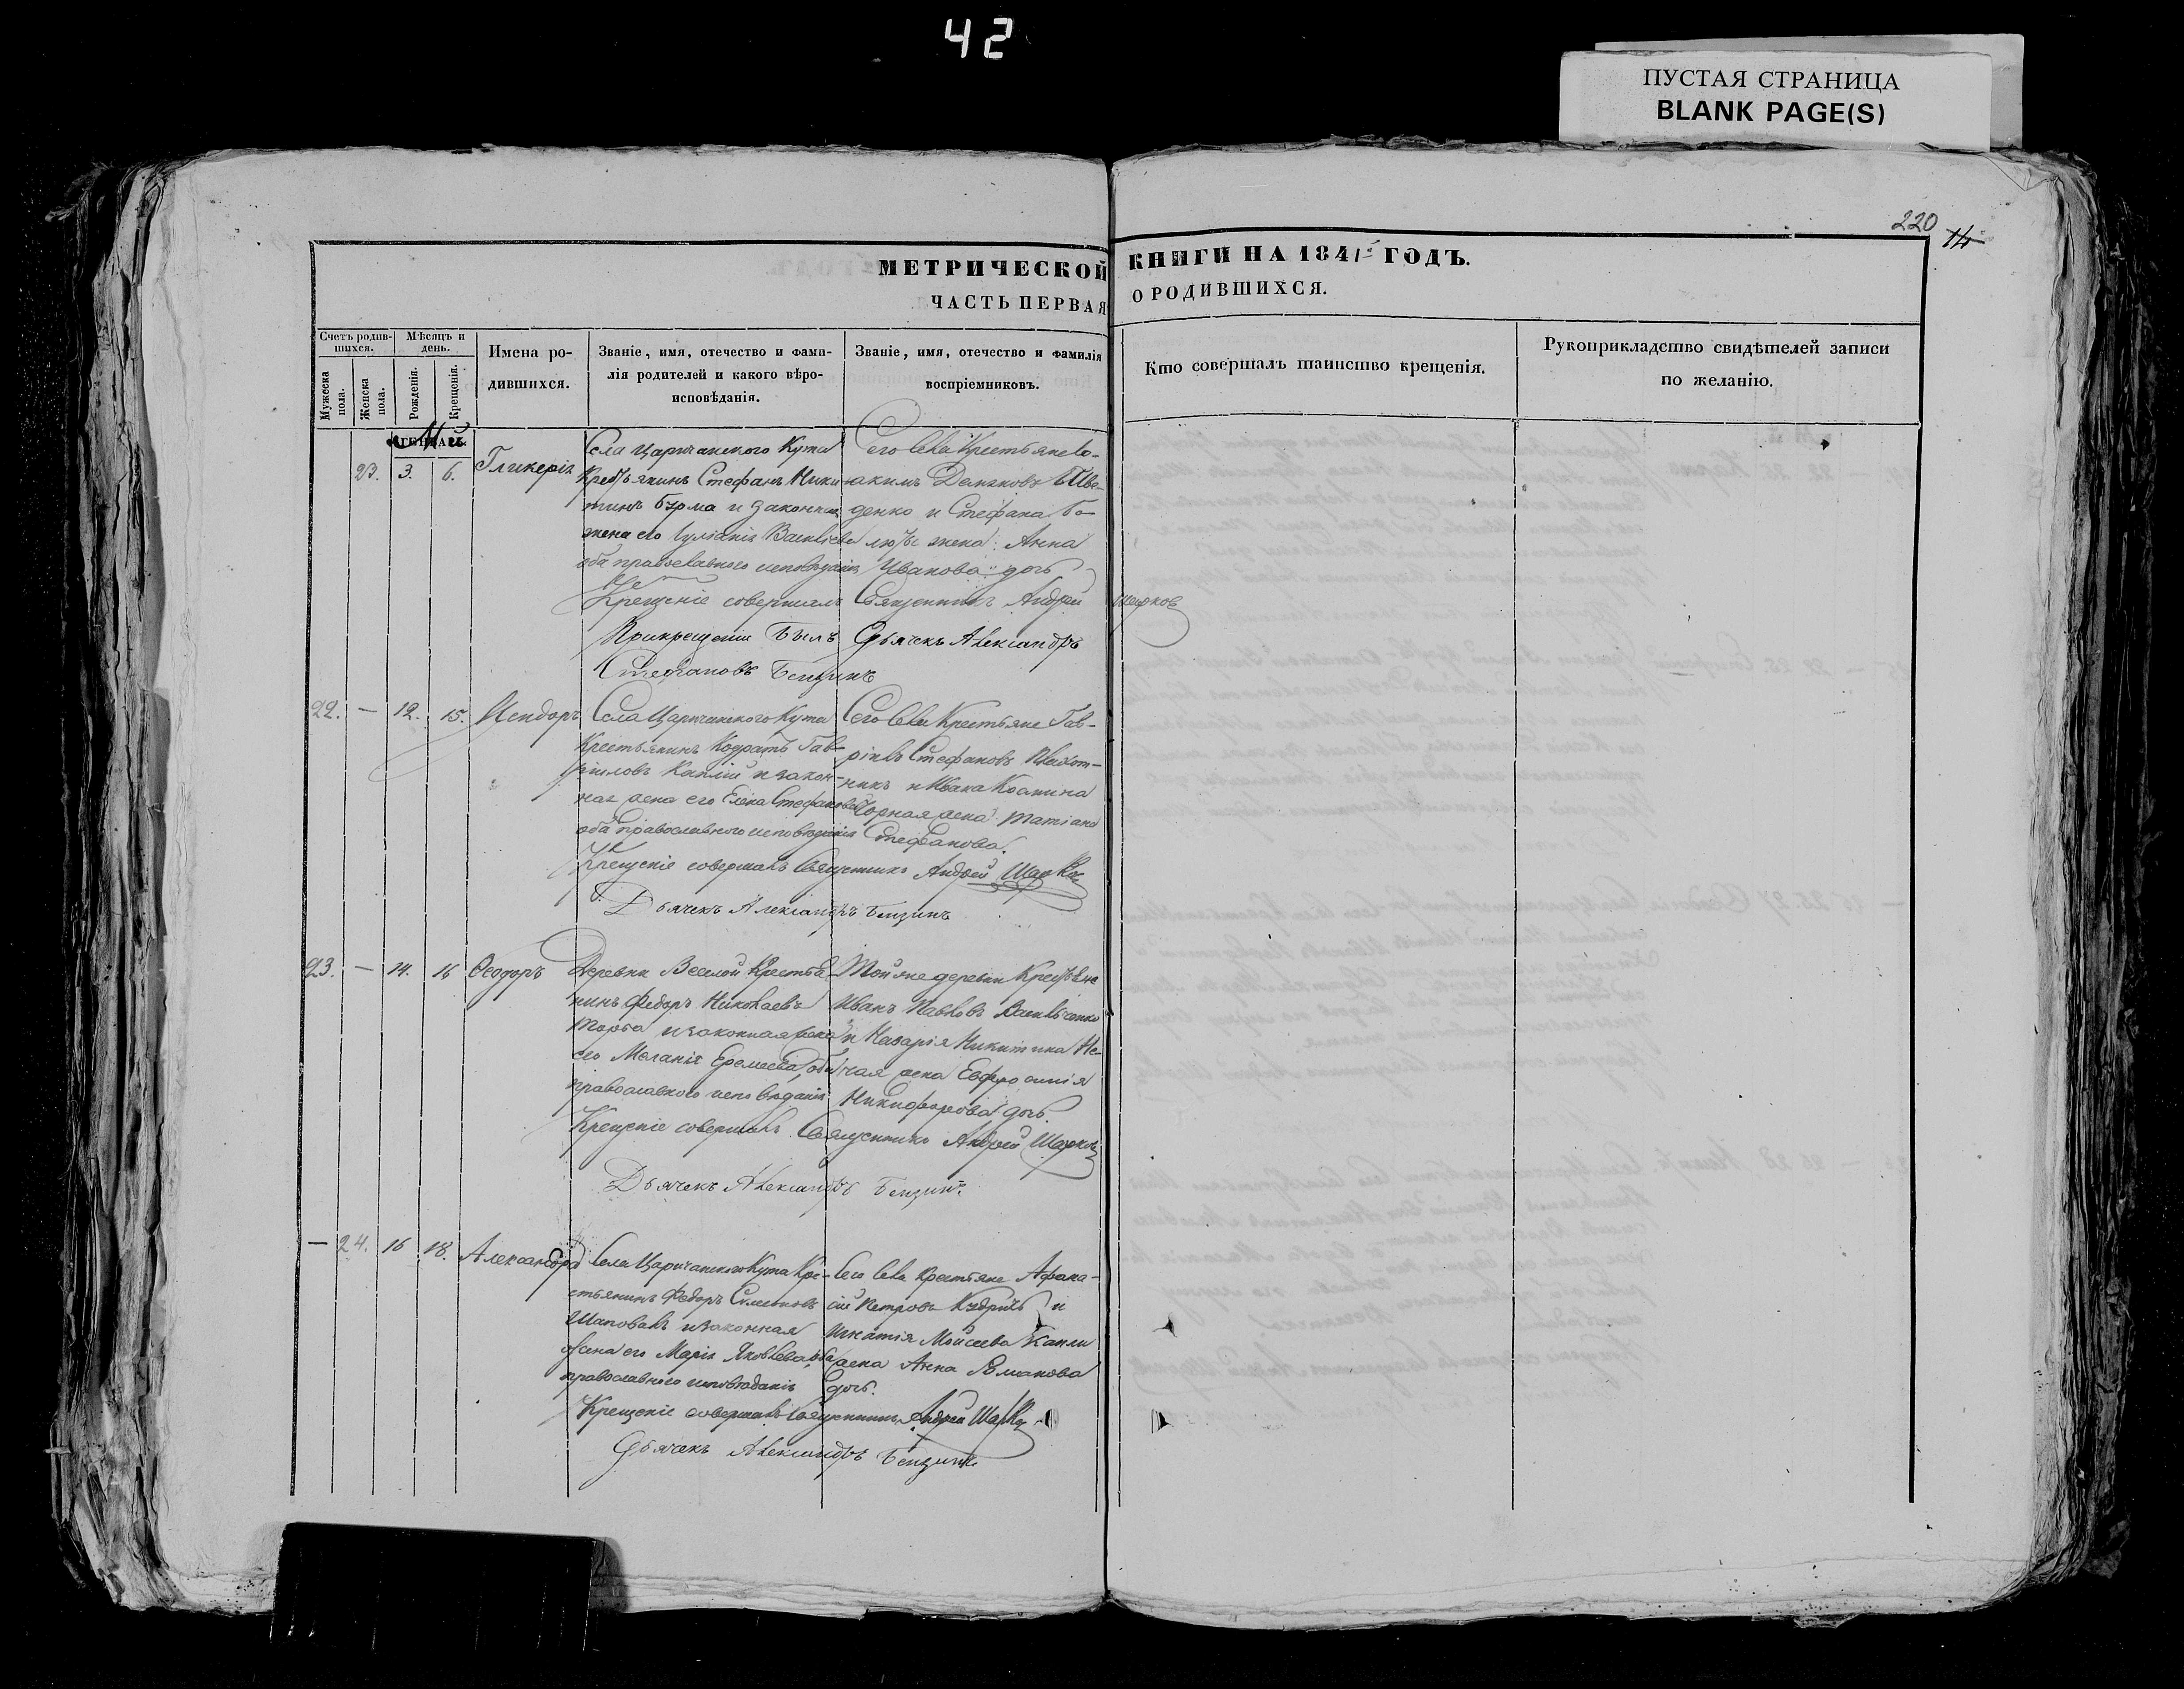 42
ПУСТАЯ СТРАНИЦА
BLANK PAGE(S)
220
14
МЕТРИЧЕСКОЙ КНИГИ НА 1841 ГОДЪ.
ЧАСТЬ ПЕРВАЯ О РОДИВШИХСЯ.
Счетъ родившихся.
Мужеска пола.
Женска пола.
Мѣсяцъ и день.
Рожденія.
Крещенія.
Имена родившихся.
Званіе, имя, отечество и фамилія родителей и какого вѣроисповѣданія.
Званіе, имя, отечество и фамилія воспріемниковъ.
Кто совершалъ таинство крещенія.
Рукоприкладство свидѣтелей записи по желанію.
23. 3. 6. Гликерія
Села Царичанского Кута
Крестьянинъ Стефанъ Ники-
тинъ Бурма и законная
жена его Іуліанія Василіева
оба православного исповѣданія
Сего села Крестьяне Іо-
акимъ Демяновъ
денко и Стефана Бо-
жена Анна
Иванова дочь
Крещеніе совершалъ Священникъ Андрей Шарковъ
При крещеніи былъ Дьячекъ Александръ
Стефановъ Бензинъ
22. — 12. 15. Исидоръ
Села Царичанского Кута
Крестьянинъ Кодратъ Гав-
риловъ Каплій и закон-
ная жена его Елена Стефанова
оба православного исповѣданія
Сего села Крестьяне Гав-
ріилъ Стефановъ Плахот-
никъ и Ивана Козмина
Чорная жена Татіана
Стефанова.
Крещеніе совершалъ Священникъ Андрей Шарковъ
Дьячекъ Александръ Бензинъ
23. — 14. 16 Ѳеодоръ
Деревни Веселой Крестья-
нинъ Федоръ Николаевъ
Торба и законная жена
его Меланія Еремеева, оба
православного исповѣданія
Той же деревни Крестьяне
Иванъ Павловъ Васильченко
и Назарія Никитина Не-
чая жена Евфросинія
Никифорова дочь
Крещеніе совершалъ Священникъ Андрей Шарковъ
Дьячекъ Александръ Бензинъ
— 24. 16 18. Александра
Села Царичанского Кута Кре-
стьянинъ Федоръ Симеоновъ
Шаповалъ и законная
жена его Марія Яковлева оба
православного исповѣданія
Сего села Крестьяне Афана-
сій Петровъ Кудричъ и
Игнатія Мойсеева Капли
жена Анна
дочь.
Крещеніе совершалъ Священникъ Андрей Шарковъ
Дьячекъ Александръ Бензинъ